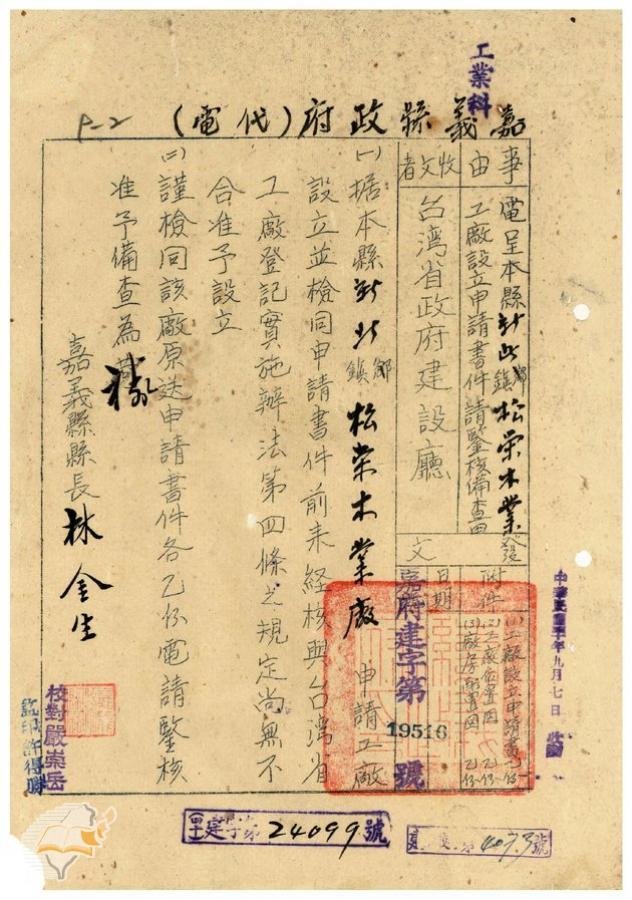 工業科
嘉義縣政府(代電)
P-2
事由
電呈本縣 鄉鎮松荣木業
工廠設立申請書件請鑒核備查由
收文者
台湾省政府建設廳
發文
附件
(1)工廠設立申請書乙份
(2)工廠位置図乙份
(3)廠房配置図乙份
日期
嘉府建字第19516號
(一)据本縣 鄉鎮松荣木業廠申請工廠
設立並檢同申請書件前来経核與台湾省
工廠登記實施辦法第四條之規定尚無不
合准予設立
(二)謹檢同該廠原送申請書件各乙份電請鑒核
准予備查為禱
嘉義縣縣長林金生
校對嚴崇岳
監印許得勝
中華民國 年九月七日
建字第24099號